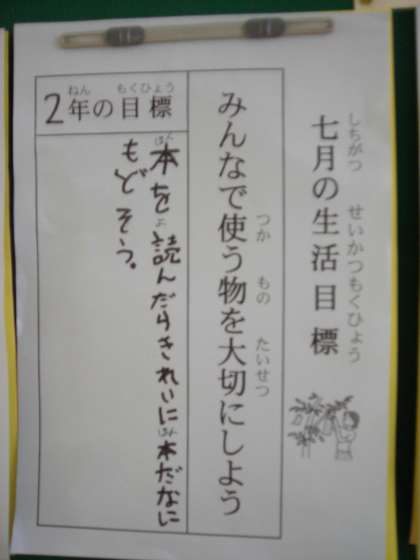 七月の生活目標
しちがつ せいかつもくひょう
みんなで使う物を大切にしよう
つか もの たいせつ
2年の目標
ねん もくひょう
本を読んだらきれいに本だなに
ほん よ ほん
もどそう。